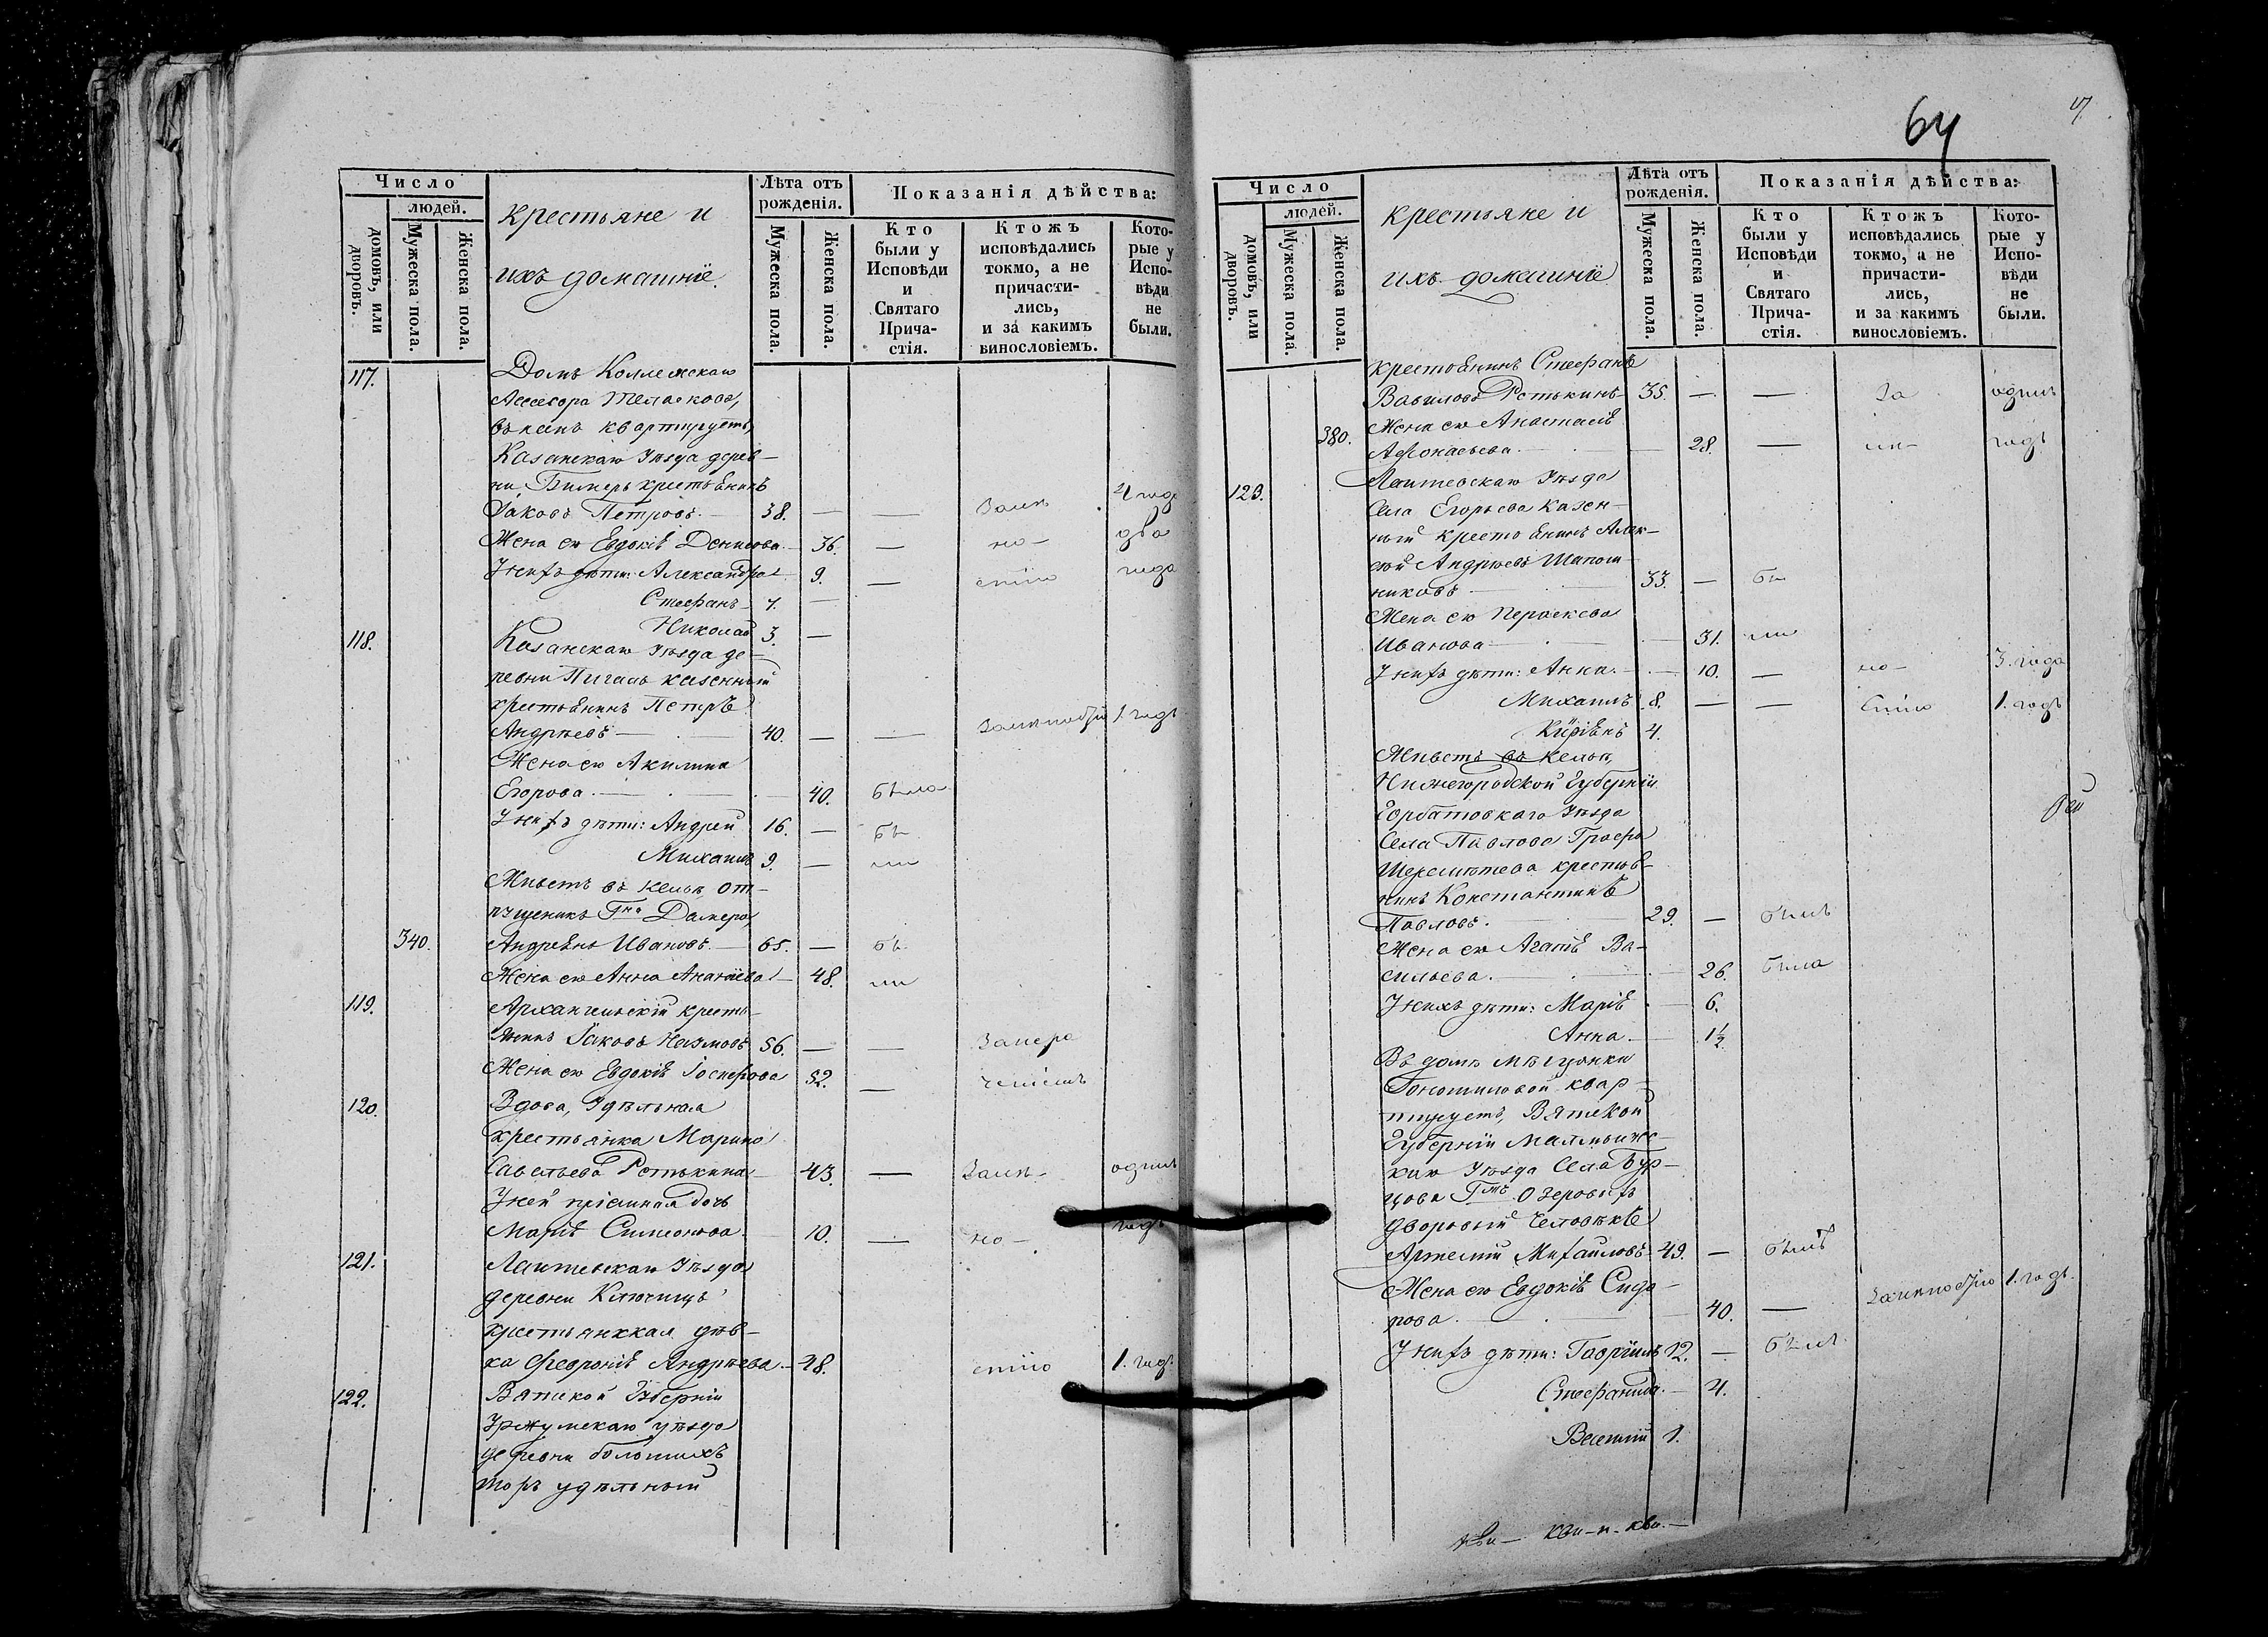 64
Число
людей.
домовъ, или дворовъ.
Мужеска пола.
Женска пола.
крестьяне и
ихъ домашніе.
Лѣта отъ рожденія.
Мужеска пола.
Женска пола.
Показанія дѣйства:
Кто были у Исповѣди и Святаго Причастія.
Ктожъ исповѣдались токмо, а не причастились, и за какимъ винословіемъ.
Которые у Исповѣди не были.
117. Домъ Коллежскаго
Ассесора
въ немъ квартируетъ,
Казанскаго Уѣзда дерев-
ни Бимерь крестьянинъ
Іаковъ Петровъ. 38. — —
Жена его Евдокія Денисова. 36. — но- два
У нихъ дѣти: Александра 9. — года
Стефанъ 7. —
Николай 3. —
118. Казанскаго Уѣзда де-
ревни казенный
крестьянинъ Петръ
Андреевъ — 40. — — 1. годъ
Жена его Акилина
Егорова. — 40. была
У нихъ дѣти: Андрей 16. — бы
Михаилъ 9. — ли
Живетъ въ кельѣ от-
пущеникъ Гна
340. Андреянъ Ивановъ. — 65. — бы
Жена его Анна Ананіева — 48. ли
119. Архангельскій кресть-
янинъ Іаковъ Наумовъ 56. — —
Жена его Евдокія 52. —
120. Вдова, Удѣльная
крестьянка Марина
Савельева Ретькина — 43. — одинъ
У ней пріемная дочь
Марія Симеонова. 10. — но- годъ
121. Лаишевскаго Уѣзда
деревни Ключищъ
крестьянская дѣв-
ка Феврония Андреева. — 48. 1. годъ
122. Вятской Губерніи
Уржумскаго уѣзда
деревни большихъ
удѣльный
Число
людей.
домовъ, или дворовъ.
Мужеска пола.
Женска пола.
крестьяне и
ихъ домашніе
Лѣта отъ рожденія.
Мужеска пола.
Женска пола.
Показанія дѣйства:
Кто были у Исповѣди и Святаго Причастія.
Ктожъ исповѣдались токмо, а не причастились, и за какимъ винословіемъ.
Которые у Исповѣди не были.
крестьянинъ Стефанъ
Вавиловъ Ретькинъ 35. — — За одинъ
380. Жена его Анастасія
Афонасьева. — 28. — годъ
123. Лаишевскаго Уѣзда
Села Егорьева казен-
ный крестьянинъ Алек-
сѣй Андреевъ Шапош-
никовъ — 33. — бы
Жена его Параскева
Иванова — 31. ли
У нихъ дѣти: Анна. — 10. — но- 3. года
Михаилъ 8. — — 1. годъ
4.
Живетъ въ кельѣ,
Нижегородской Губерніи
Горбатовскаго Уѣзда
Села Павлова Графа
Шереметева крестья-
нинъ Константинъ
Павловъ. 29. — былъ
Жена его Агапія Ва-
сильева. — 26. была
У нихъ дѣти: Марія 6.
Анна. 1½
Въ домѣ мѣщанки
квар-
тируетъ, Вятской
Губерніи Малмыжс-
каго Уѣзда Села Бур-
цова Гжъ Озеровыхъ
дворовый Человѣкъ
Артемій Михайловъ 49. — былъ
Жена его Евдокія Сидо-
рова. — 40. — 1. годъ.
У нихъ дѣти: Гавріилъ 12. — былъ
Стефанида. — 4.
1.